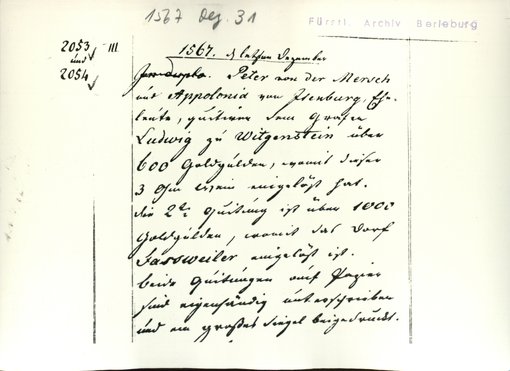 1567 Dez. 31
Fürstl. Archiv Berleburg
2053 III.
und
2054
1567. d. letzten Dezember
In duplo. Peter von der Mersch
und Appolonia von Isenburg, Ehe-
leute, quitiren dem Grafen
Ludwig zu Witgenstein über
600 Goldgülden, womit dieser
3 Ohm Wein eingelößt hat.
die 2te Quitung ist über 1000
Goldgülden, womit das Dorf
Sassweiler eingelößt ist.
beide Quitungen auf Papier
sind eigenhändig unterschrieben
und ein großes Siegel beigedruckt.